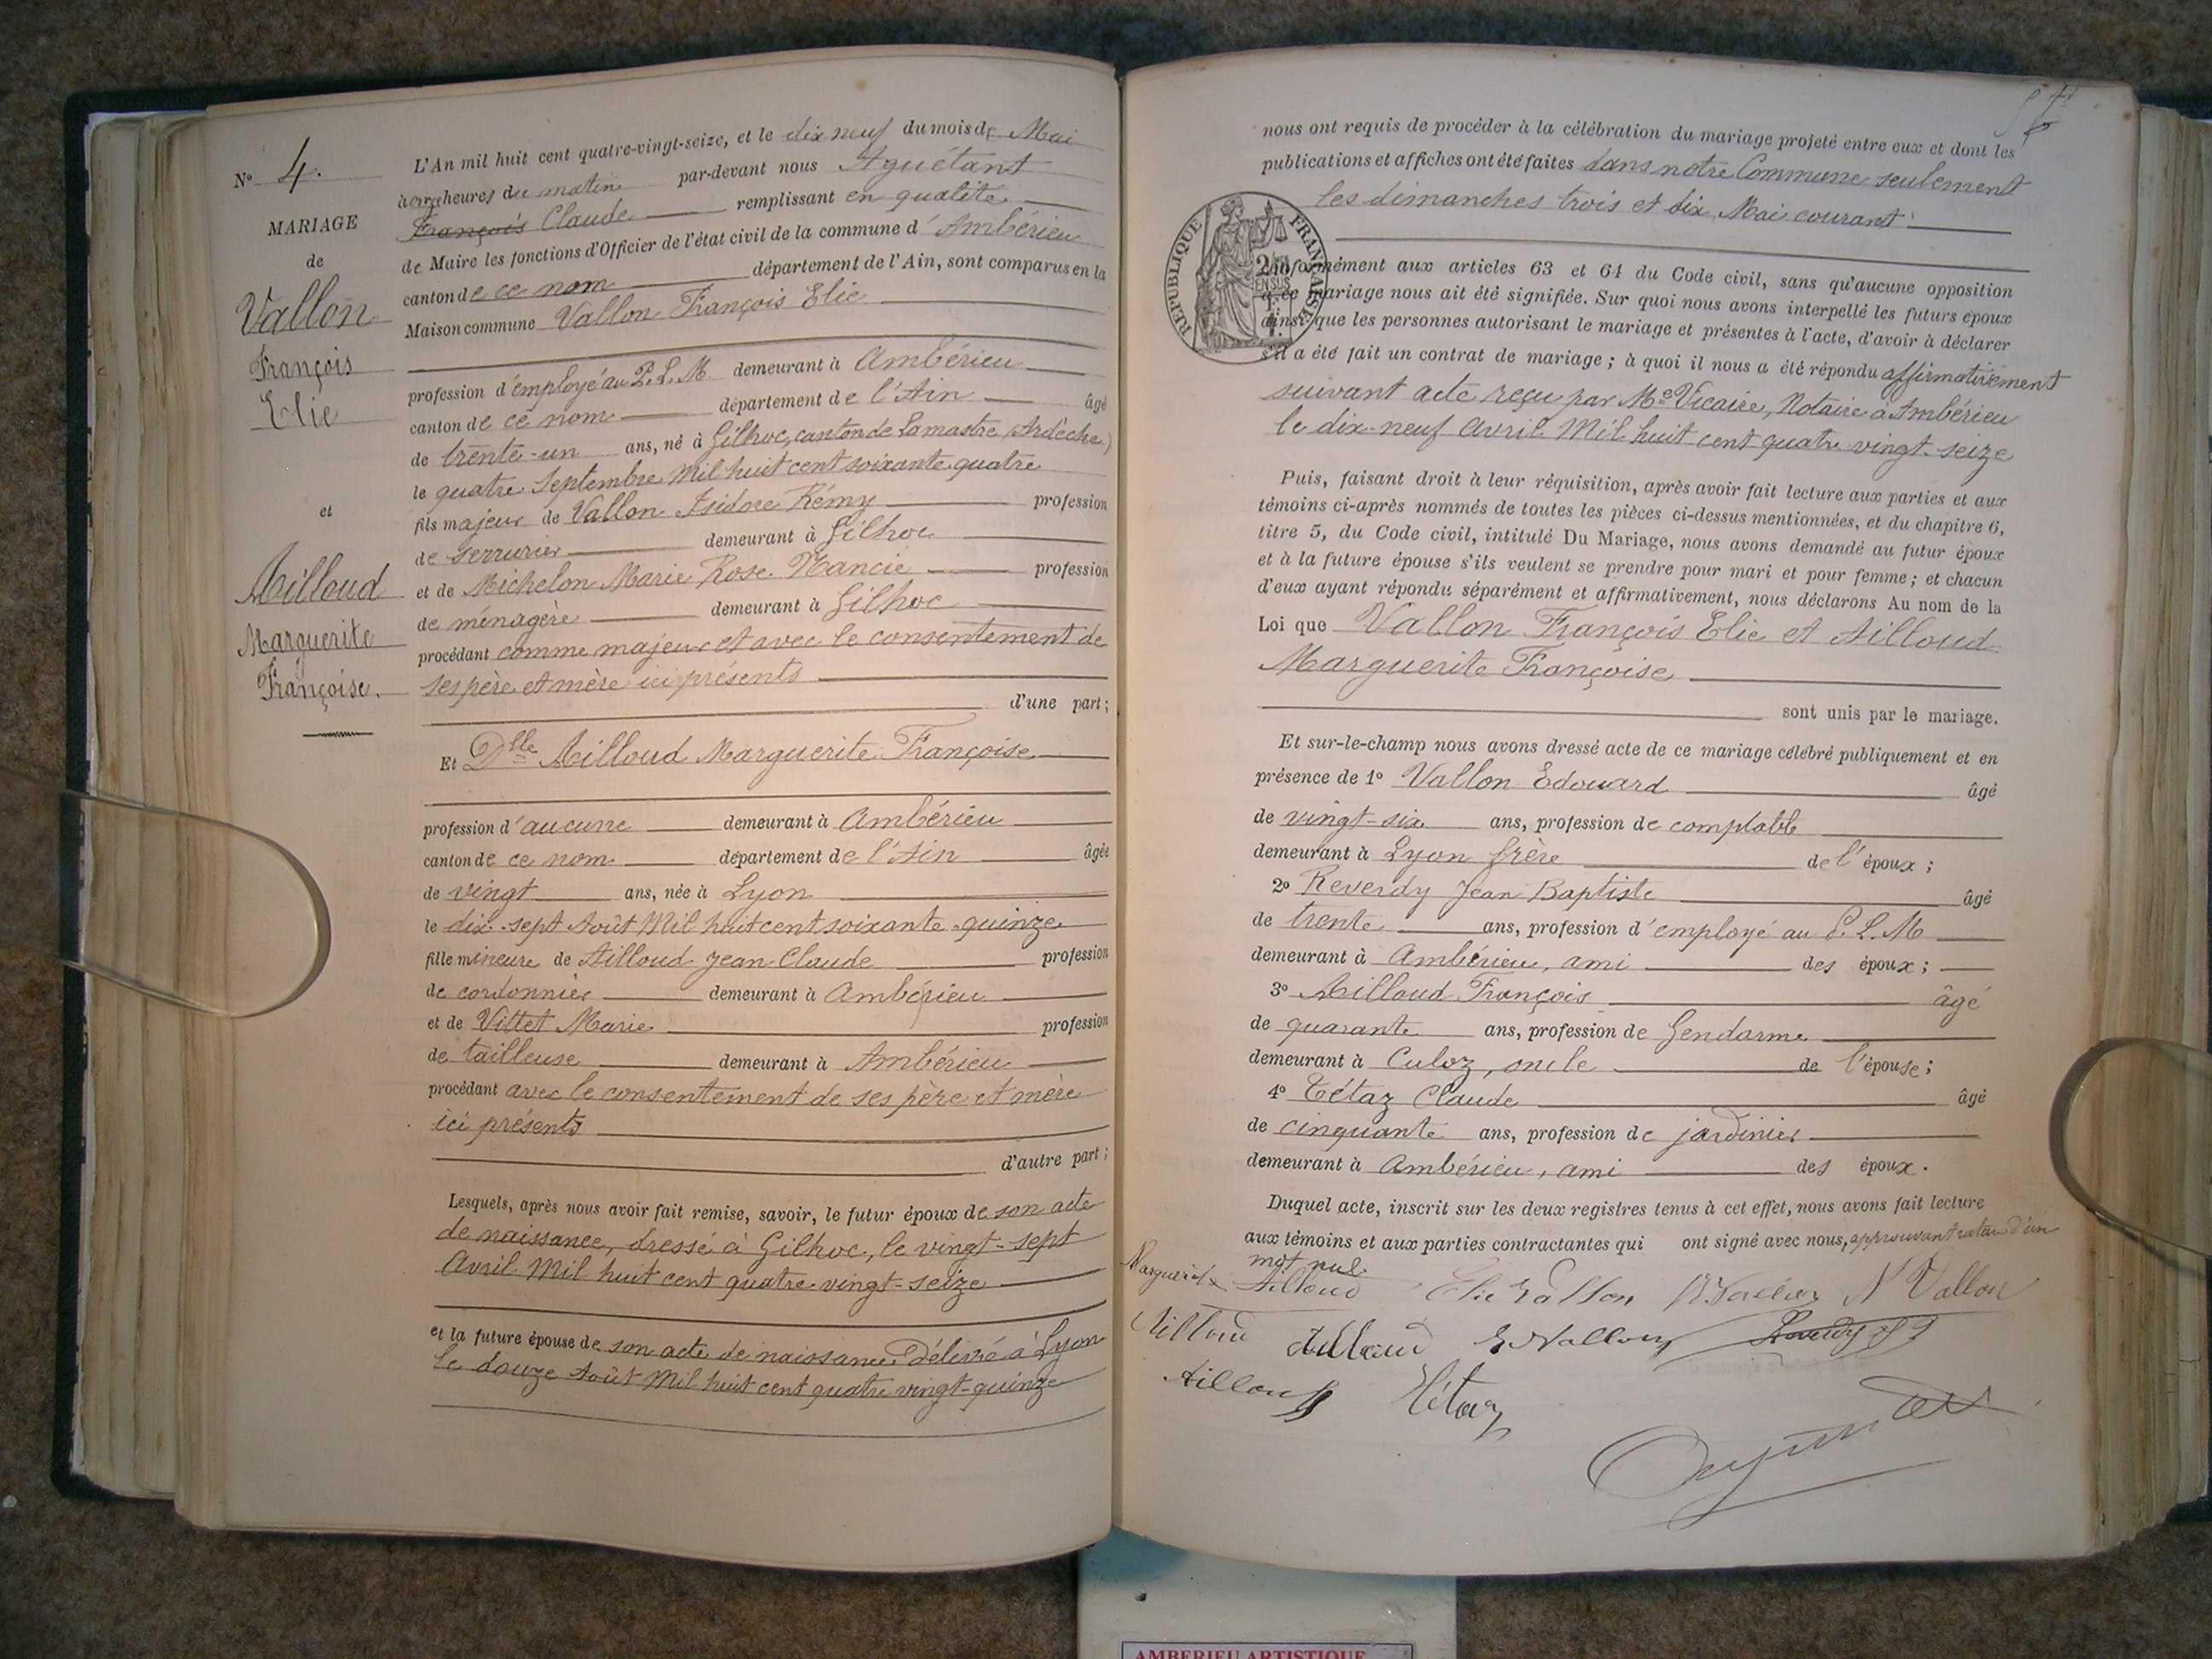 N° 4.
MARIAGE
de
Vallon
François
Elie
et
Ailloud
Marguerite
Françoise.
L'An mil huit cent quatre-vingt-seize, et le dix neuf du mois de Mai
à onze heures du matin par-devant nous Aguétant
François Claude remplissant en qualité
de Maire les fonctions d'Officier de l'état civil de la commune d'Ambérieu
canton de ce nom département de l'Ain, sont comparus en la
Maison commune Vallon François Elie
profession d'employé au P.L.M demeurant à Ambérieu
canton de ce nom département de l'Ain âgé
de trente-un ans, né à Gilhoc, canton de Lamastre (Ardèche)
le quatre Septembre Mil huit cent soixante quatre
fils majeur de Vallon Isidore Rémy profession
de serrurier demeurant à Gilhoc
et de Michelon Marie Rose Nancie profession
de ménagère demeurant à Gilhoc
procédant comme majeur et avec le consentement de
ses père et mère ici présents
d'une part;
Et Dlle Ailloud Marguerite Françoise
profession d'aucune demeurant à Ambérieu
canton de ce nom département de l'Ain âgée
de vingt ans, née à Lyon
le dix-sept Août Mil huit cent soixante-quinze
fille mineure de Ailloud Jean Claude profession
de cordonnier demeurant à Ambérieu
et de Vittet Marie profession
de tailleuse demeurant à Ambérieu
procédant avec le consentement de ses père et mère
ici présents
d'autre part;
Lesquels, après nous avoir fait remise, savoir, le futur époux de son acte
de naissance, dressé à Gilhoc, le vingt-sept
Avril Mil huit cent quatre vingt-seize
et la future épouse de son acte de naissance Délivré à Lyon
le douze Août Mil huit cent quatre vingt-quinze
nous ont requis de procéder à la célébration du mariage projeté entre eux et dont les
publications et affiches ont été faites dans notre Commune seulement
les dimanches trois et dix Mai courant
RÉPUBLIQUE FRANÇAISE
conformément aux articles 63 et 64 du Code civil, sans qu'aucune opposition
à ce mariage nous ait été signifiée. Sur quoi nous avons interpellé les futurs époux
ainsi que les personnes autorisant le mariage et présentes à l'acte, d'avoir à déclarer
s'il a été fait un contrat de mariage; à quoi il nous a été répondu affirmativement
suivant acte reçu par Me Vicaire, Notaire à Ambérieu
le dix-neuf Avril Mil huit cent quatre vingt-seize
Puis, faisant droit à leur réquisition, après avoir fait lecture aux parties et aux
témoins ci-après nommés de toutes les pièces ci-dessus mentionnées, et du chapitre 6,
titre 5, du Code civil, intitulé Du Mariage, nous avons demandé au futur époux
et à la future épouse s'ils veulent se prendre pour mari et pour femme; et chacun
d'eux ayant répondu séparément et affirmativement, nous déclarons Au nom de la
Loi que Vallon François Elie et Ailloud
Marguerite Françoise
sont unis par le mariage.
Et sur-le-champ nous avons dressé acte de ce mariage célébré publiquement et en
présence de 1° Vallon Edouard âgé
de vingt-six ans, profession de comptable
demeurant à Lyon frère de l'époux;
2° Reverdy Jean Baptiste âgé
de trente ans, profession d'employé au P.L.M
demeurant à Ambérieu, ami des époux;
3° Ailloud François âgé
de quarante ans, profession de Gendarme
demeurant à Culoz, oncle de l'épouse;
4° Tétaz Claude âgé
de cinquante ans, profession de jardinier
demeurant à Ambérieu, ami des époux.
Duquel acte, inscrit sur les deux registres tenus à cet effet, nous avons fait lecture
aux témoins et aux parties contractantes qui ont signé avec nous, approuvant rature d'un
mot nul.
Marguerite Ailloud Elie Vallon N Vallon
Ailloud Ailloud E Vallon Reverdy
Ailloud Tétaz
AMBERIEU ARTISTIQUE